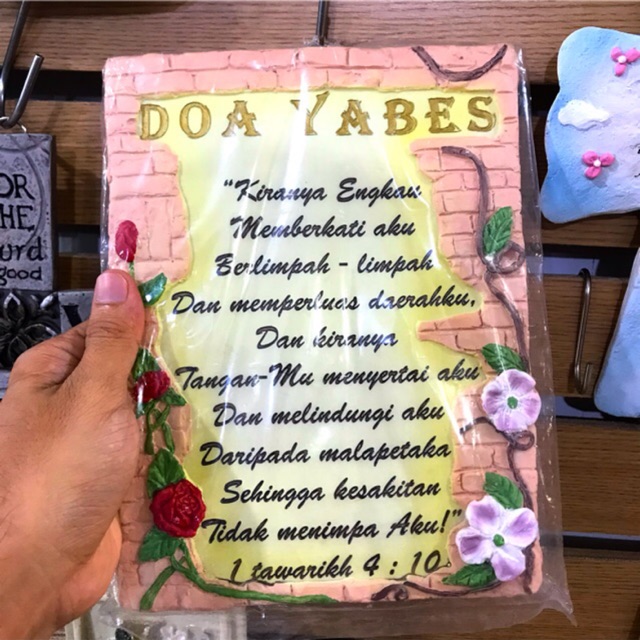 DOA YABES
"Kiranya Engkau
Memberkati aku
Berlimpah - limpah
Dan memperluas daerahku,
Dan kiranya
Tangan-Mu menyertai aku
Dan melindungi aku
Daripada malapetaka
Sehingga kesakitan
Tidak menimpa Aku!"
1 tawarikh 4 : 10
OR
HE,
urd
good